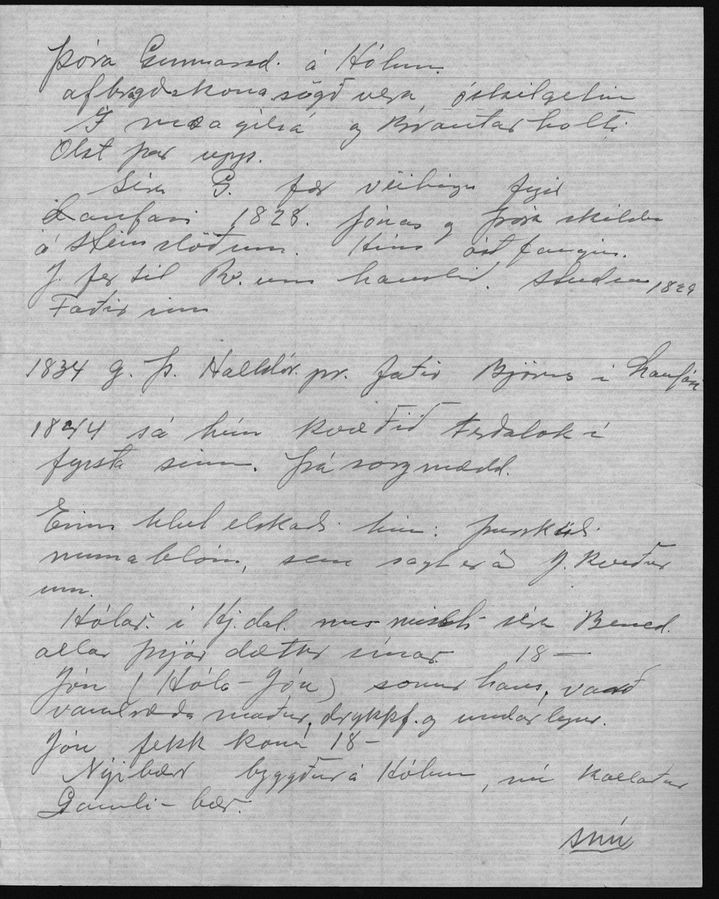 Þóra Gunnarsd. á Hólum
afbragðskona sögð vera óskilgetin
og Brautarholti.
Ólst þar upp.
Séra G. fær veitingu fyrir
Laufási 1828. Jónas og Þóra skildu
á Steinsstöðum. Hún ástfangin.
J. fer til Rv. um haustið. Student 1829
Faðir inn
1834 g. Þ. Halldór. pr. faðir Björns í Laufási
1844 sá hún kvæðið Ferðalok í
fyrsta sinn. Þá sorgmædd.
Eins hlut elskaði hún: þurrkuð
munablóm, sem sagt er að J. kveður
um.
Hólar í Hj.dal. missti séra Bened.
allar þrjár dætur sínar 18—
Jón (Hóla-Jón) sonur hans, varð
vandræðamaður, drykkf. og undarlegur.
Jón fekk konu 18—
Nýibær byggður á Hólum, nú kallaður
Gamli-bær.
snú